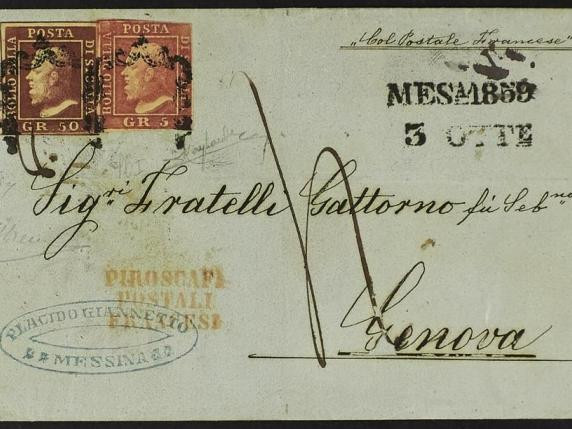 "Col Postale Francese"
POSTA
BOLLO DELLA
DI SICILIA
GR 50
POSTA
BOLLO DELLA
DI SICILIA
GR 5
MES 1859
3 OTTE
Sig.ri Fratelli Gattorno fù Seb.no
Genova
PIROSCAFI
POSTALI
FRANCESI
PLACIDO GIANNETTO
MESSINA